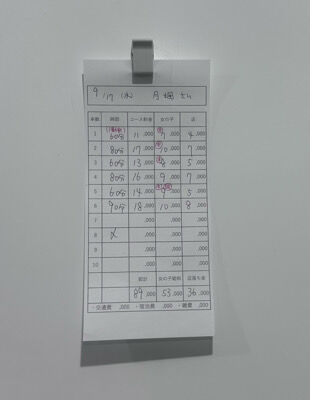 9/17 (水) 月 さん
本数 時間 コース料金 女の子 店
1 60分 11,000 7,000 4,000
2 80分 17,000 10,000 7,000
3 60分 13,000 8,000 5,000
4 80分 16,000 9,000 7,000
5 60分 14,000 9,000 5,000
6 90分 18,000 10,000 8,000
7 ,000 ,000 ,000
8 ,000 ,000 ,000
9 ,000 ,000 ,000
10 ,000 ,000 ,000
総計 女の子総額 店落ち金
89,000 53,000 36,000
・交通費 ,000 ・宿泊費 ,000 ・雑費 ,000